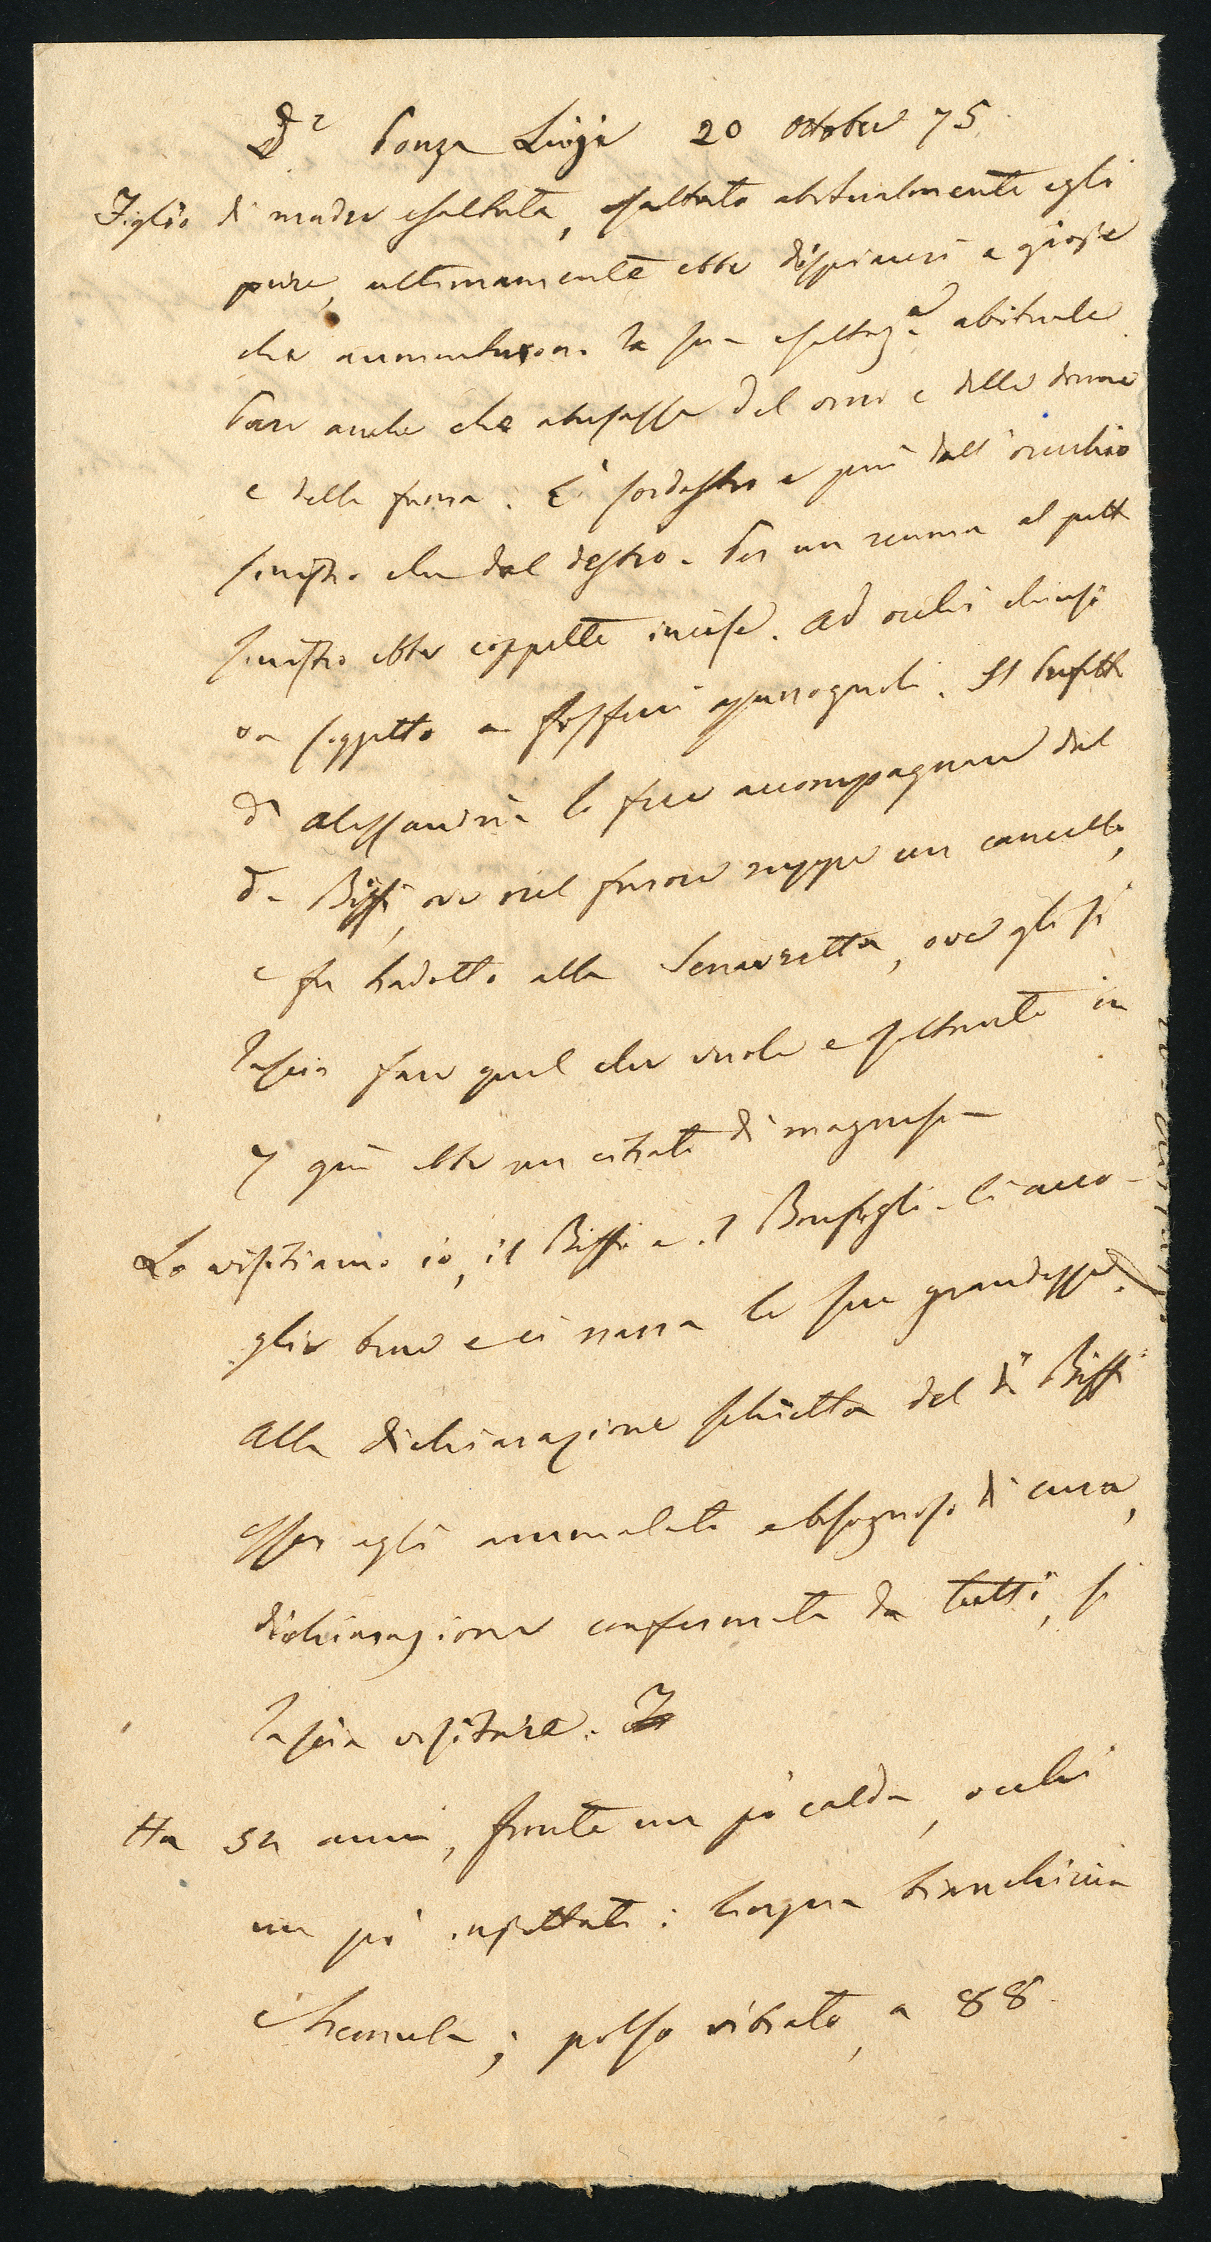 Dr Ponza Luigi 20 ottobre 75
Figlio di madre esaltata, esaltato abitualmente egli
pure, ultimamente ebbe dispiaceri e gioje
che aumentarono la sua esaltaz.e abituale
Pare anche che abusasse del vino e delle donne
e della . È sordastro e più dall'orecchio
sinistro che dal destro. Per un reuma al petto
sinistro ebbe coppette incise. Ad occhi chiusi
va soggetto a fosfeni . Il Prefetto
di Alessandria lo fece accompagnare dal
da Biffi, ove nel furore ruppe un cancello,
e fu tradotto alla Senavretta, ove gli si
lascia fare quel che vuole e soltanto in
7 gni ebbe un citrato di magnesia
Lo visitiamo io, il Biffi e il Bonfigli. Ci acco-
glie bene e ci narra le sue grandezze.
Alla dichiarazione schietta del Dr Biffi
esser egli ammalato e bisognoso di cura,
dichiarazione confermata da tutti, si
lascia visitare.
Ha 52 anni, fronte un pò calda, occhi
un pò injettati: lingua bianchiccia
e tremula; polso vibrato, a 88